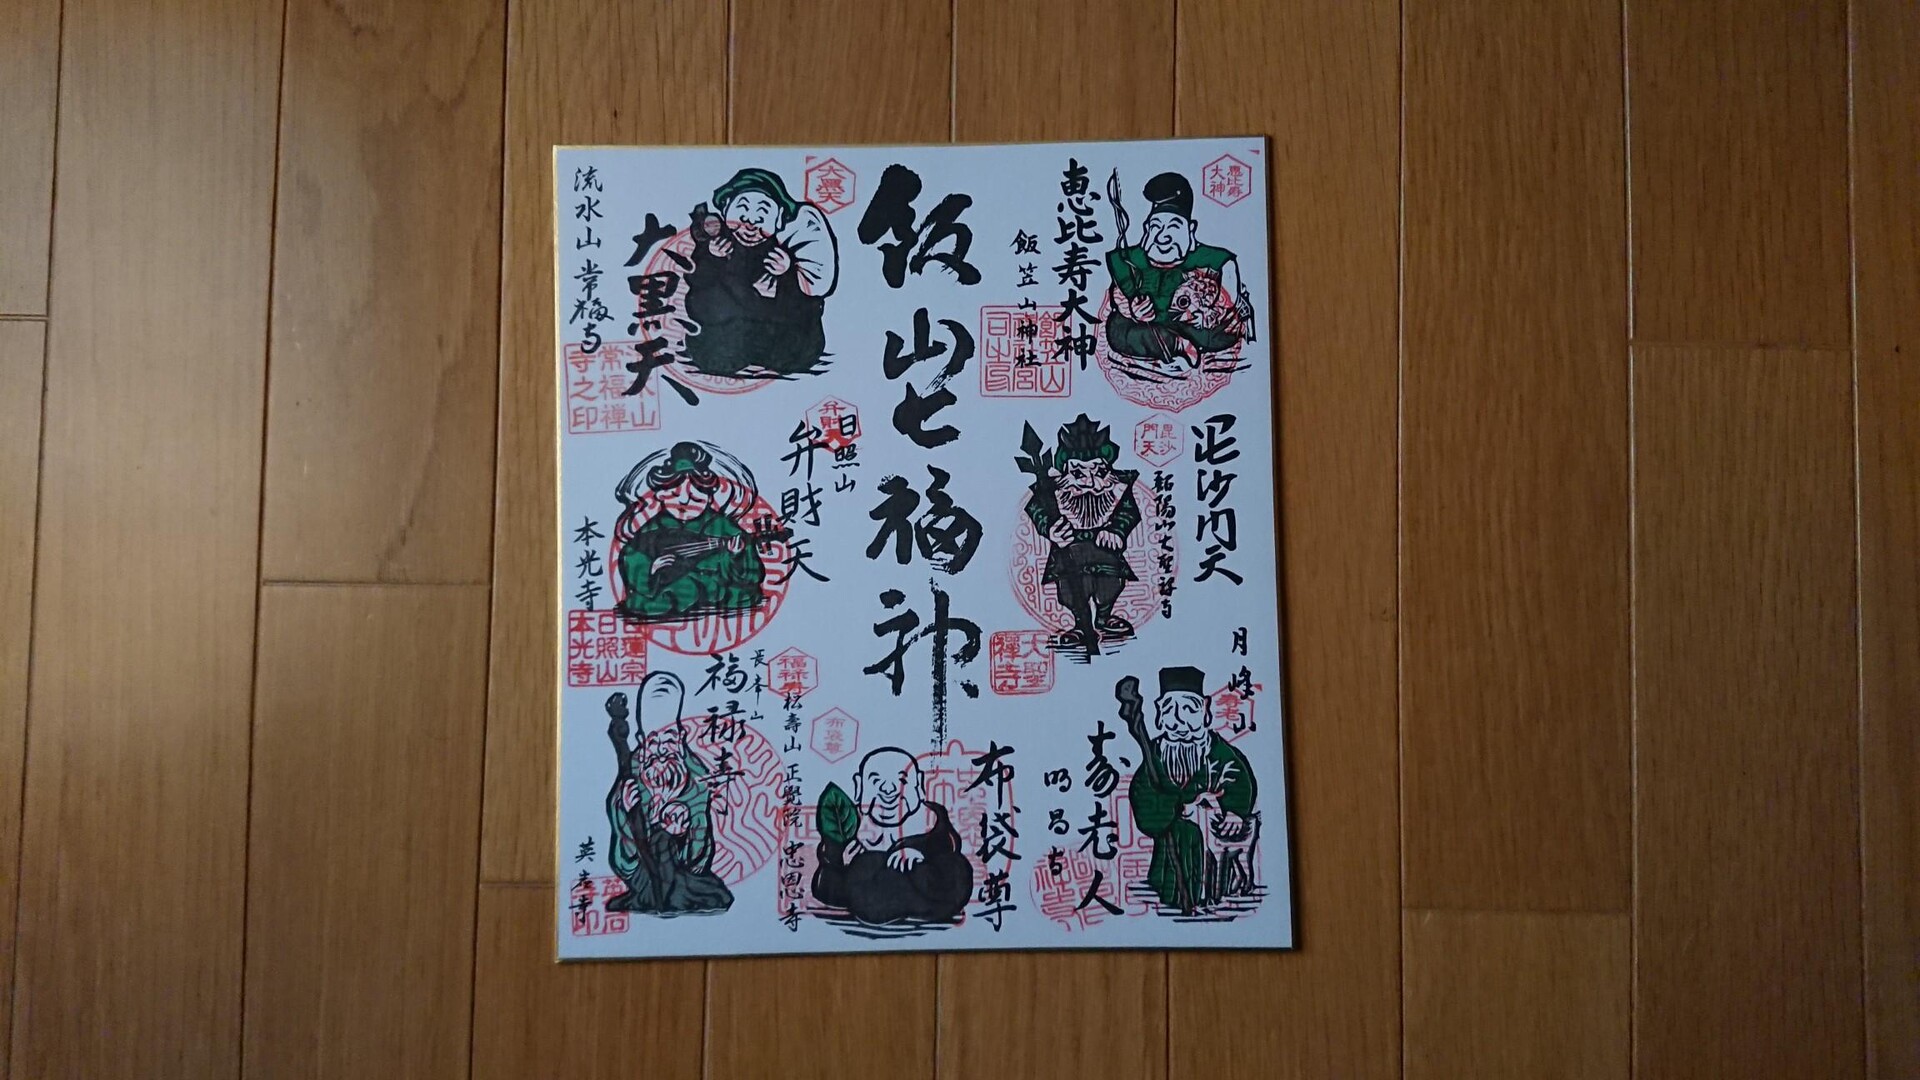 恵比寿大神
恵比寿
大神
飯笠山神社
飯山七福神
大黒天
大黒天
流水山 常福寺
常福禅
寺之印
毘沙門天
毘沙
門天
龍陽山大聖禅寺
大聖
禅寺
弁財天
日照山
弁財天
本光寺
日蓮宗
日照山
本光寺
月峰山
寿老人
寿老人
明昌寺
布袋尊
布袋尊
松寿山 正覺院 忠恩寺
福禄寿
福禄寿
長峯山
英岩寺